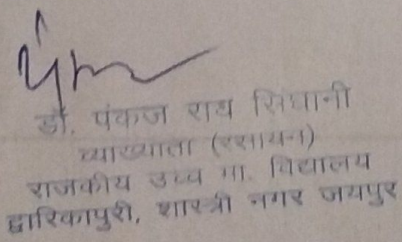 डॉ. पंकज राय सिंघानी
व्याख्याता (रसायन)
राजकीय उच्च मा. विद्यालय
द्वारिकापुरी, शास्त्री नगर जयपुर